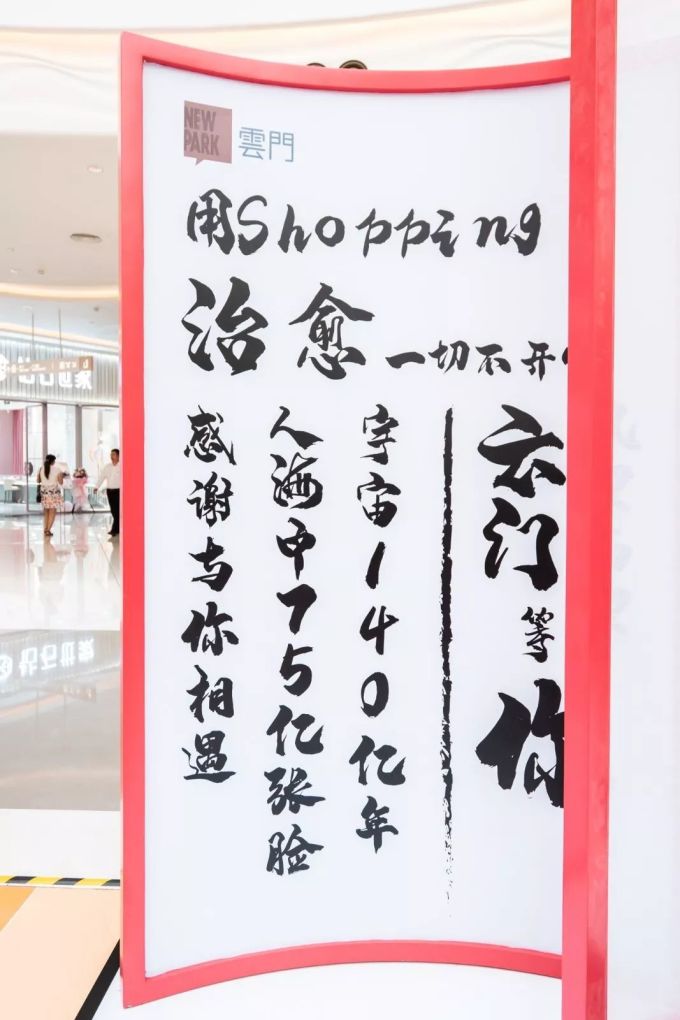 NEW
PARK
雲門
用Shopping
治愈一切不开
云门等你
宇宙140亿年
人海中75亿张脸
感谢与你相遇